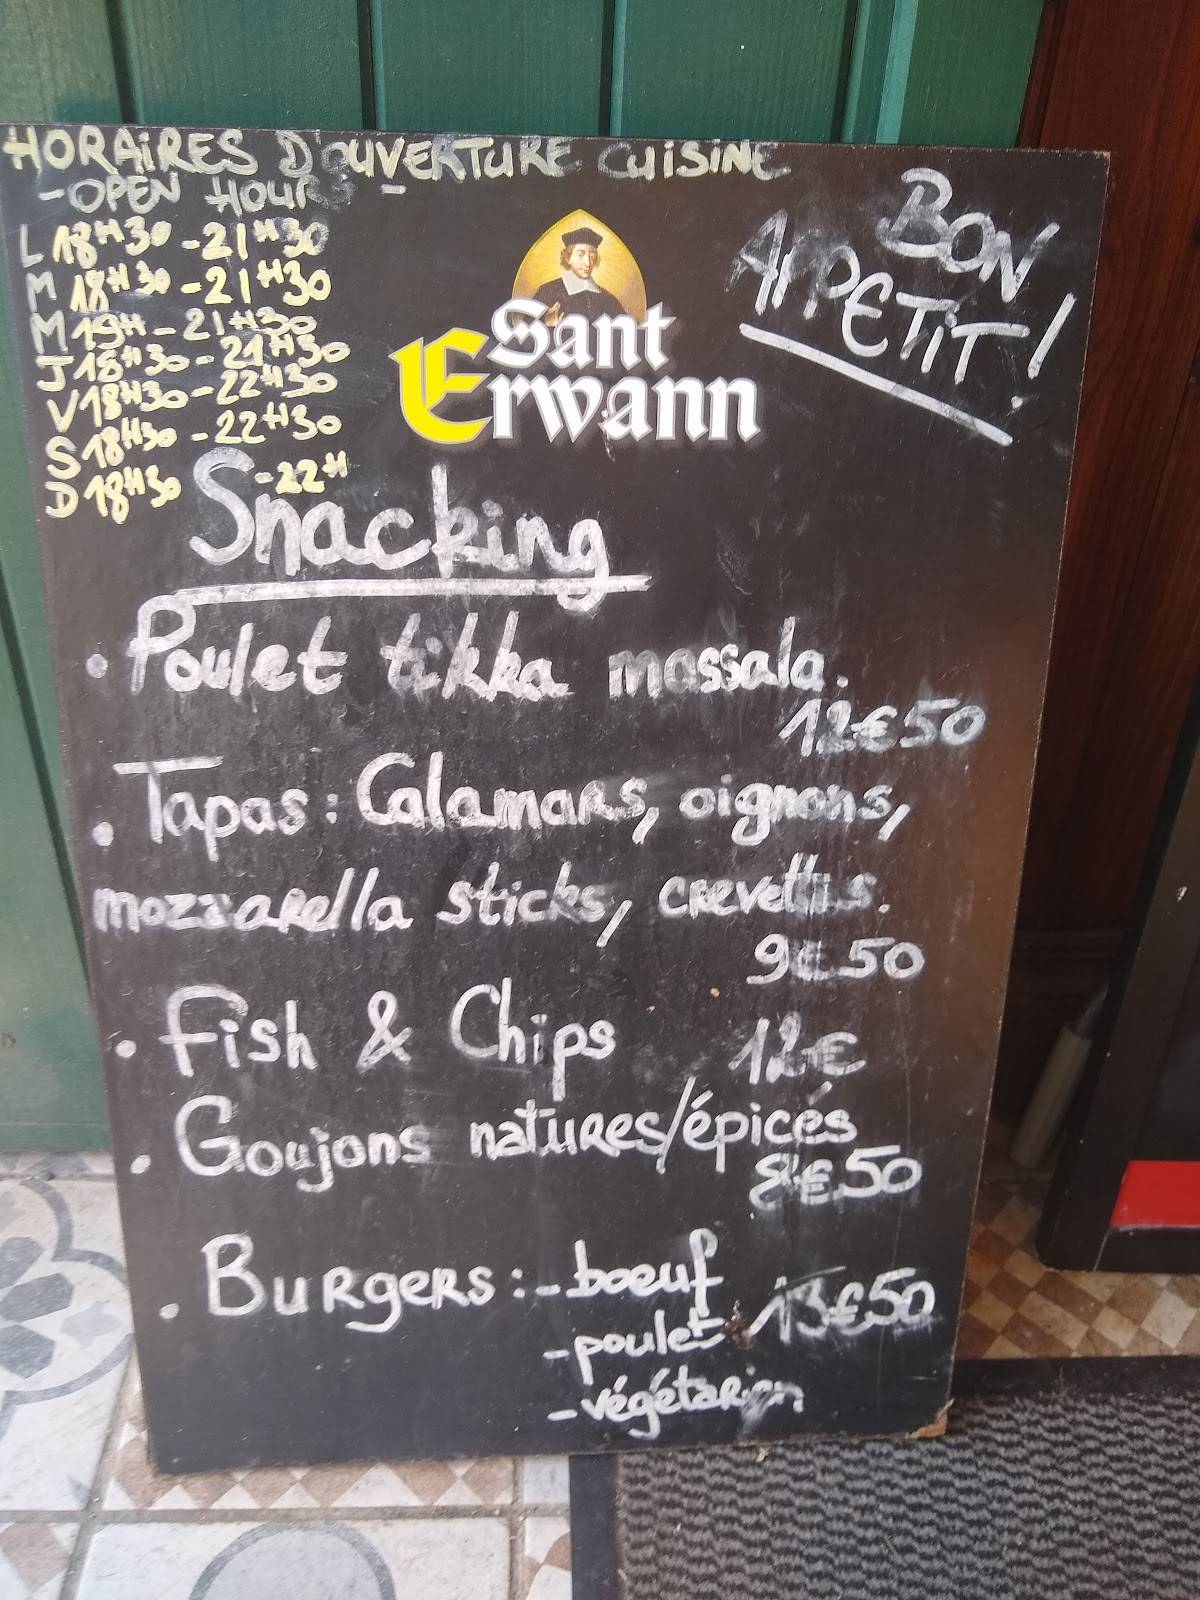 HORAIRES D'OUVERTURE CUISINE
-OPEN HOURS-
L 18H30 - 21H30
M 18H30 - 21H30
M 19H - 21H30
J 18H30 - 21H30
V 18H30 - 22H30
S 18H30 - 22H30
D 18H30 - 22H
BON
APPETIT!
Sant
Erwann
Snacking
• Poulet tikka massala.
12€50
• Tapas: Calamars, oignons,
mozzarella sticks, crevettes.
9€50
• Fish & Chips 12€
• Goujons natures/épicés
8€50
• Burgers: - boeuf
- poulet 13€50
- végétarien